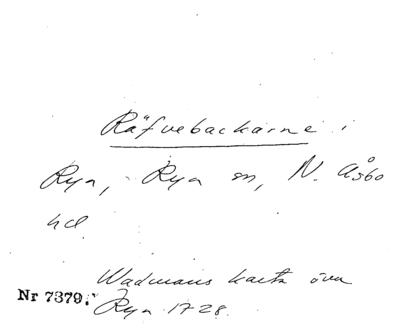 Räfvebackarne i
Rya, Rya sn, N. Åsbo
hd.
Wadmans karta över
Nr 7379. Rya 1728.